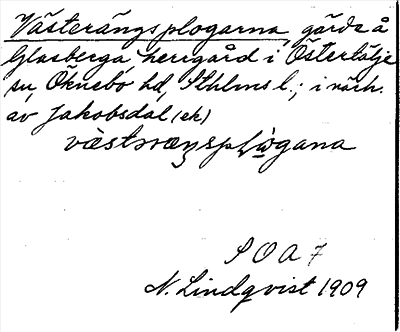 Västerängsplogarna, gärde å
Glasberga herrgård i Östertälje
sn, Öknebo hd, Sthlms l.; i närh.
av Jakobsdal (ek)
S O A 7
N. Lindqvist 1909